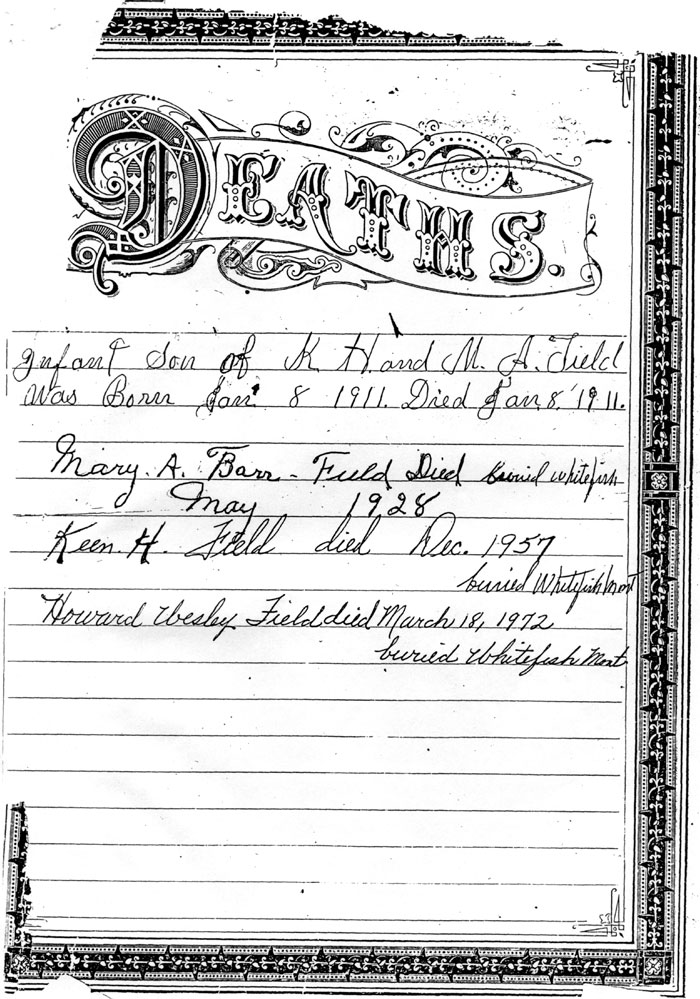 DEATHS.
Infant Son of K. H. and M. A. Field
Was Born Jan. 8 1911. Died Jan. 8, 1911.
Mary. A. Barr - Field Died buried whitefish
May 1928
Keen. H. Field died Dec. 1957
buried Whitefish Mont
Howard Wesley Field died March 18, 1972
buried Whitefish Mont